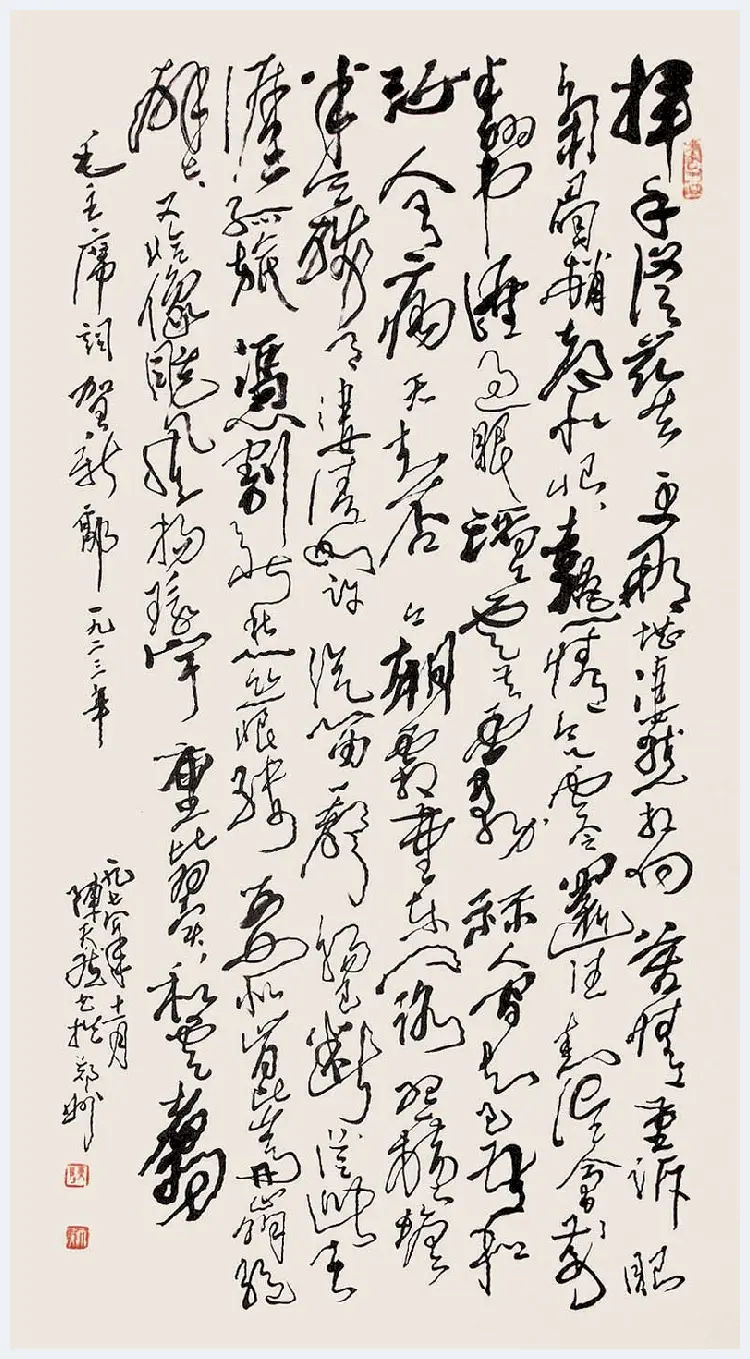 挥手從兹去更那堪淒然相向苦情重訴眼
角眉梢都似恨熱淚欲零還住知误會前
番书語過眼滔滔雲共雾算人間知己吾和
汝人有病天知否今朝霜重东门路照横塘
半天殘月凄清如許汽笛一聲腸已斷從此天
涯孤旅憑割斷愁丝恨縷要似崑崙崩絕
壁又恰像颱风掃寰宇重比翼和雲翥
毛主席詞賀新郎一九二三年
一九七八年十二月
陳天然书於郑州